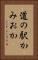 道の駅か
みおか